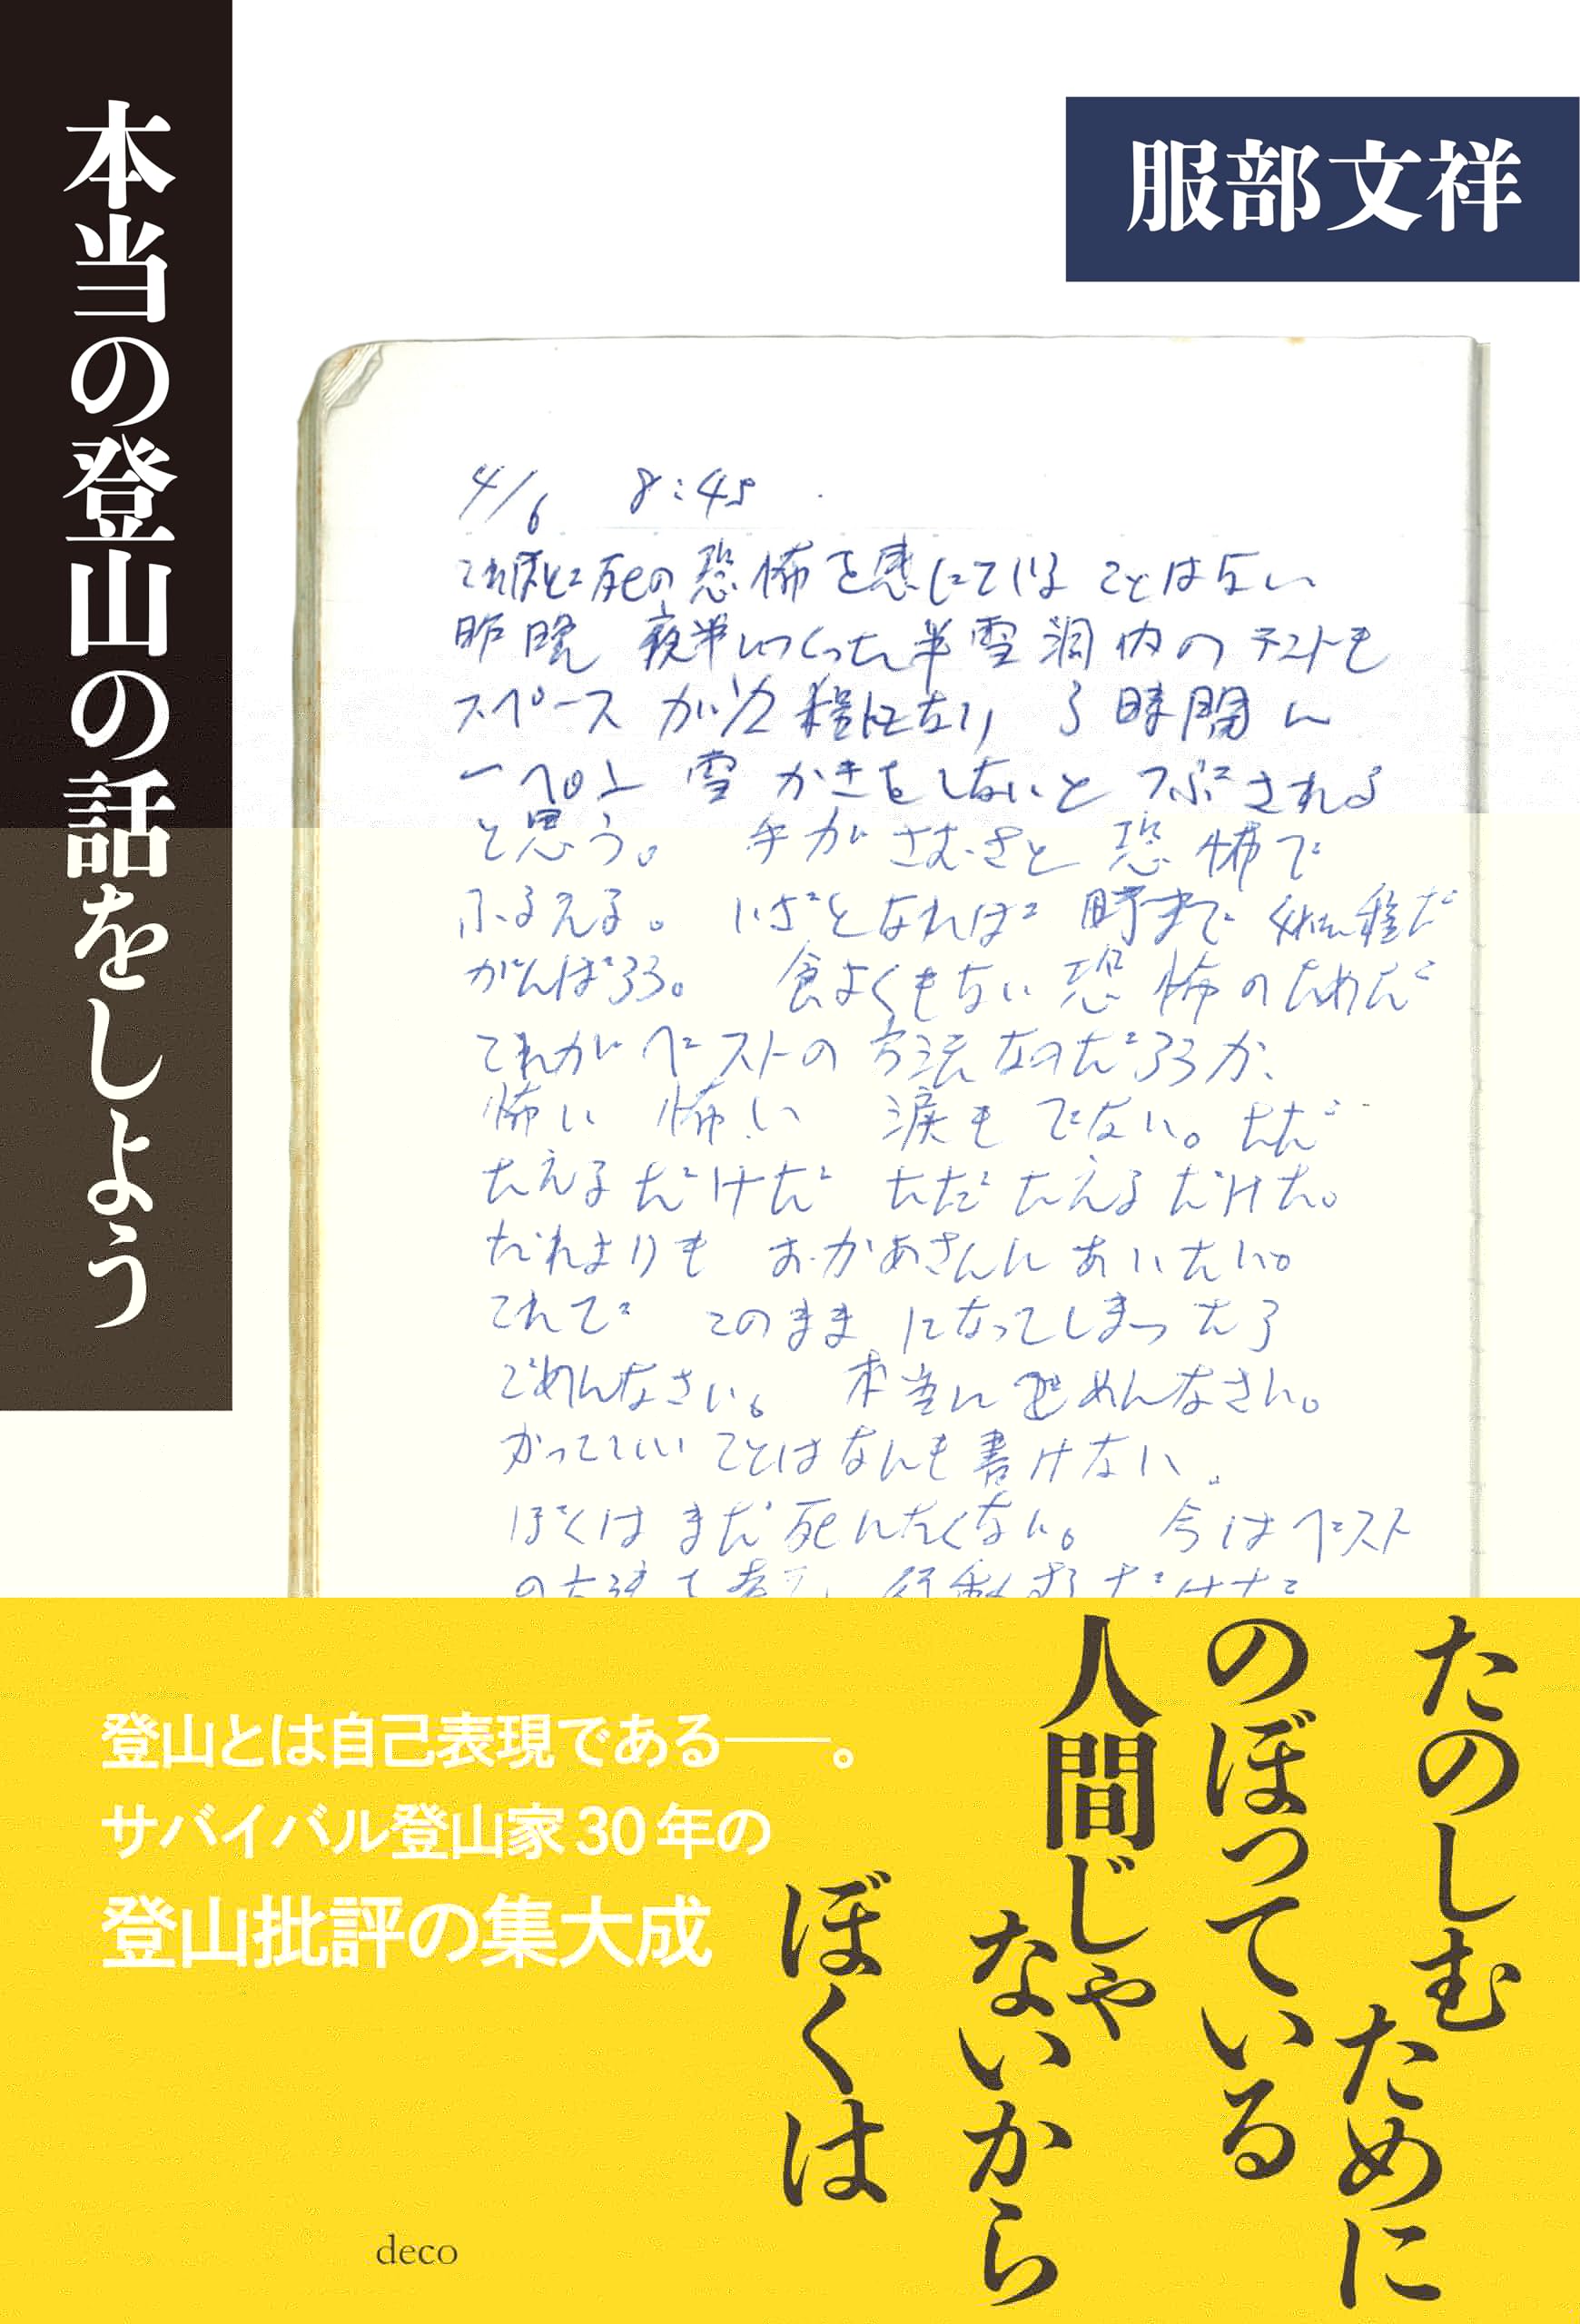 本当の登山の話をしよう
服部文祥
4/6 8:45
これほど死の恐怖を感じていることはない
昨晩 夜半につくった半雪洞内のテントも
スペースが1/2程になり 3時間に
一ぺん雪かきをしないとつぶされる
と思う。 手がさむさと恐怖で
ふるえる。 いざとなれば
がんばろう。 食よくもない恐怖のためだ
これがベストの方法なのだろうか、
怖い 怖い 涙もでない。ただ
たえるだけだ ただたえるだけだ。
だれよりも おかあさんにあいたい。
これで このままになってしまったら
ごめんなさい。 本当にごめんなさい。
かっこいいことはなんも書けない。
ぼくはまだ死にたくない。 今はベスト
たのしむために
のぼっている
人間じゃ
ないから
ぼくは
登山とは自己表現である――。
サバイバル登山家30年の
登山批評の集大成
deco